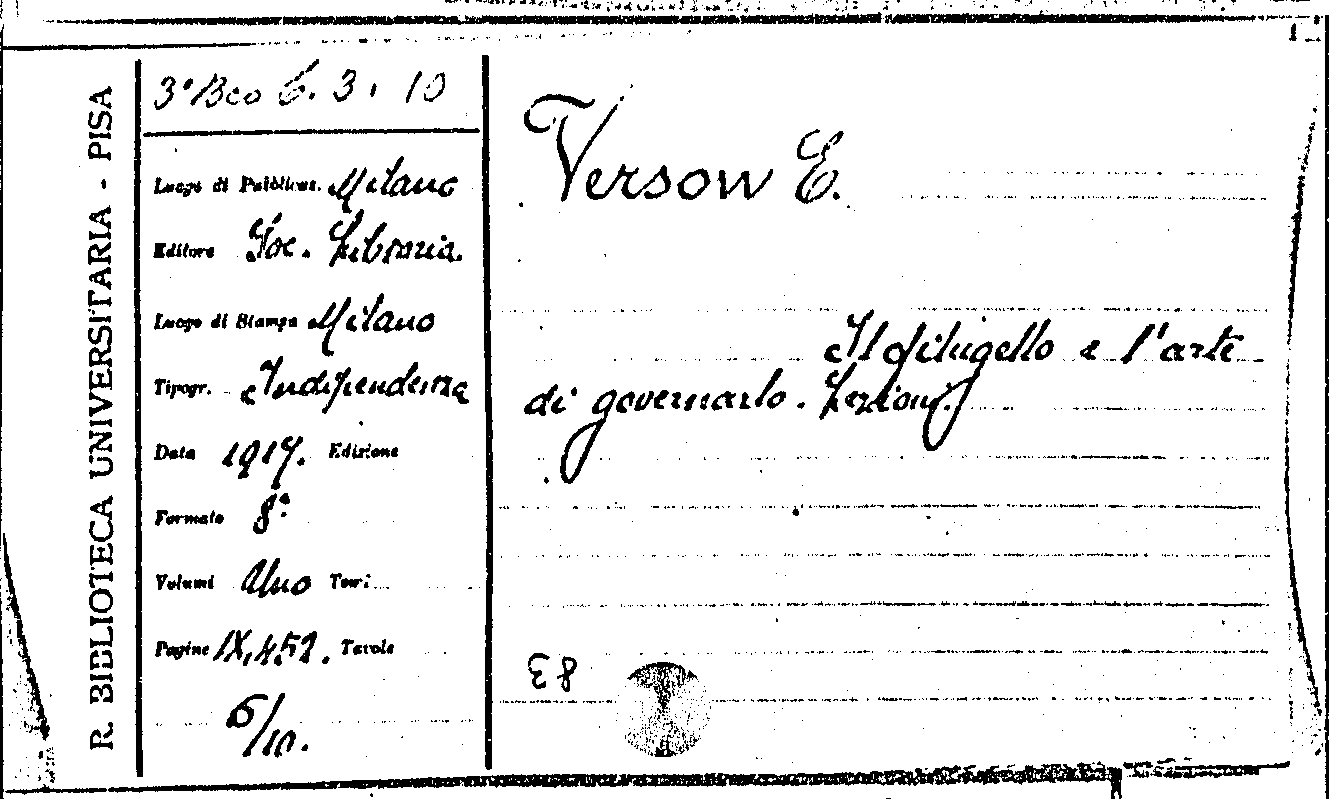 R. BIBLIOTECA UNIVERSITARIA - PISA
3º Bco 6. 3. 10
Luogo di Pubblicaz. Milano
Editore Soc. Libraria.
Luogo di Stampa Milano
Tipogr. Indipendenza
Data 1917. Edizione
Formato 8º
Volumi Uno Tomi
Pagine IX,452. Tavole
6/10.
Verson E.
Il filugello e l'arte
di governarlo. Lezioni.